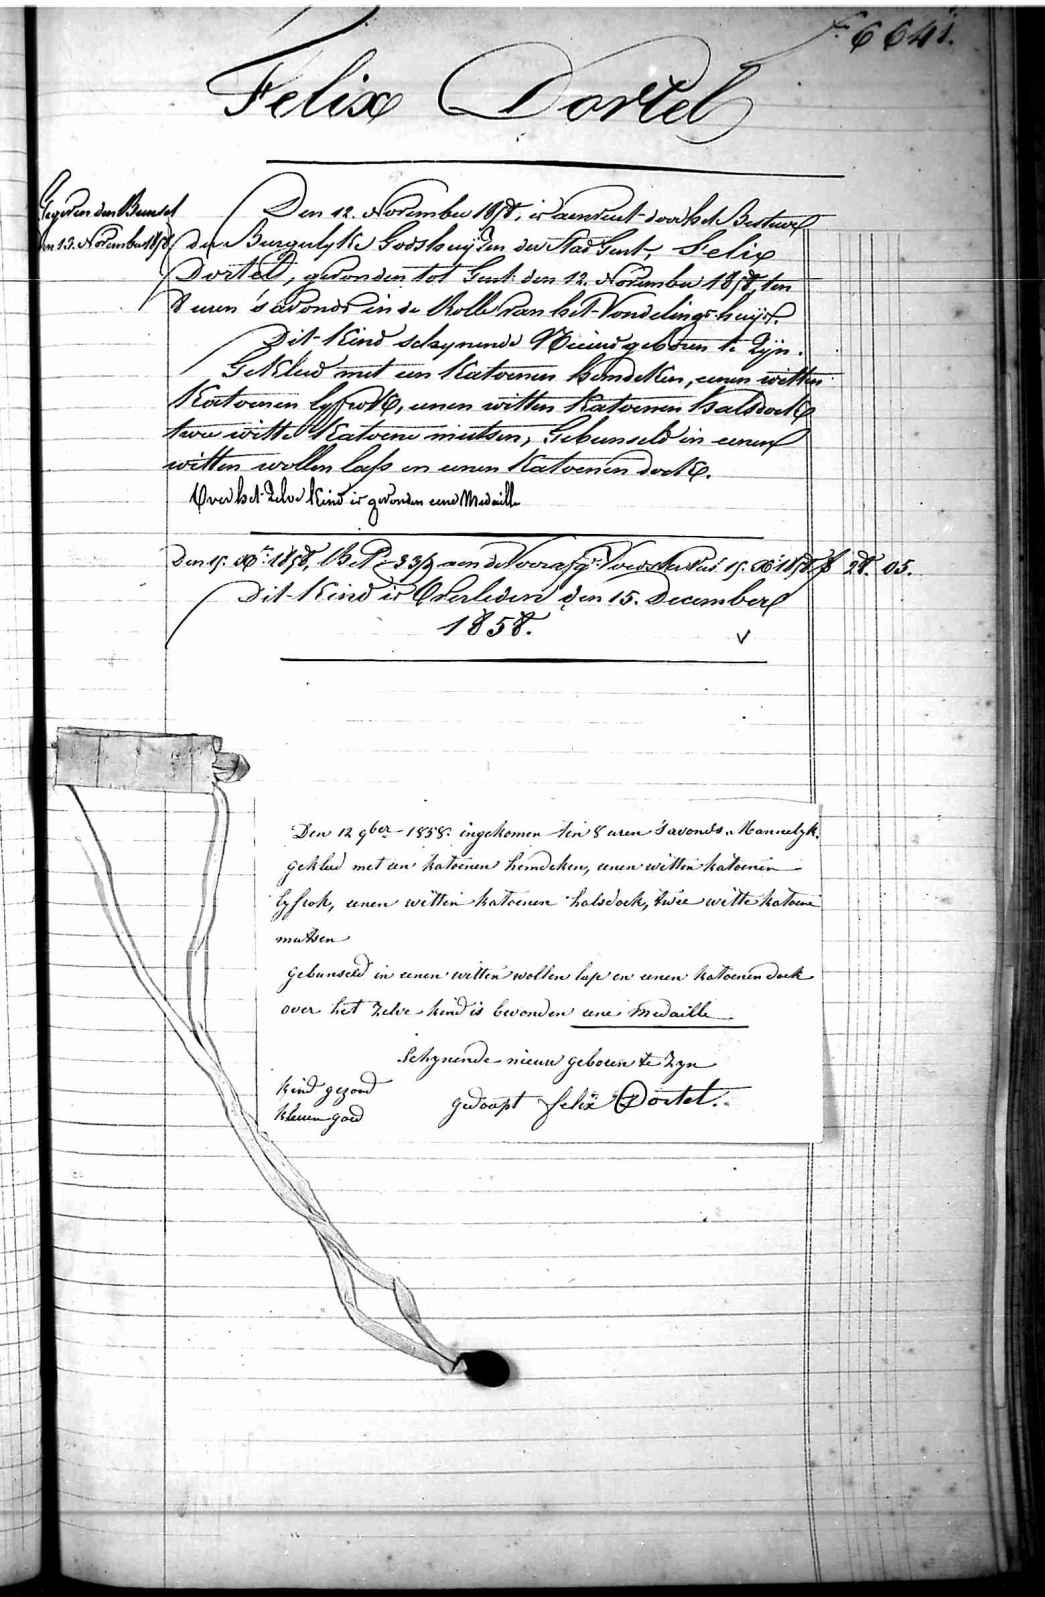 F.° 6641.
Felix Dortel
Gegeven den Bunsel
den 13. November 1858
Den 12. November 1858, is aenveert door het Bestuur
der Burgerlyke Godshuyzen der Stad Gent, Felix
Dortel, gevonden tot Gent den 12. November 1858, ten
8 uren 's avonds in de Rolle van het Vondelings-huijs.
Dit Kind schynende Nieuw geboren te Zijn.
Gekleed met een Katoenen hemdeken, eenen witten
Katoenen lyfrok, eenen witten Katoenen halsdoek
twee witte Katoene mutsen, Gebunseld in eenen
witten wollen laps en eenen Katoenen doek.
Over het Zelve Kind is gevonden eene Medaille
Den 15. Xber 1858, 15. Xber 1858 f 28. 05.
Dit Kind is Overleden den 15. December
1858.
Den 12 9ber - 1858. ingekomen ten 8 uren S'avonds. Mannelyk.
gekleed met een katoenen hemdeken, eenen witten katoenen
lyfrok, eenen witten katoenen halsdoek, twee witte katoene
mutsen
gebunseld in eenen witten wollen lap en eenen katoenen doek
over het Zelve kind is bevonden eene medaille
Schynende nieuw geboren te Zyn
kind gezond
gedoopt felix Dortel.
kleeren goed